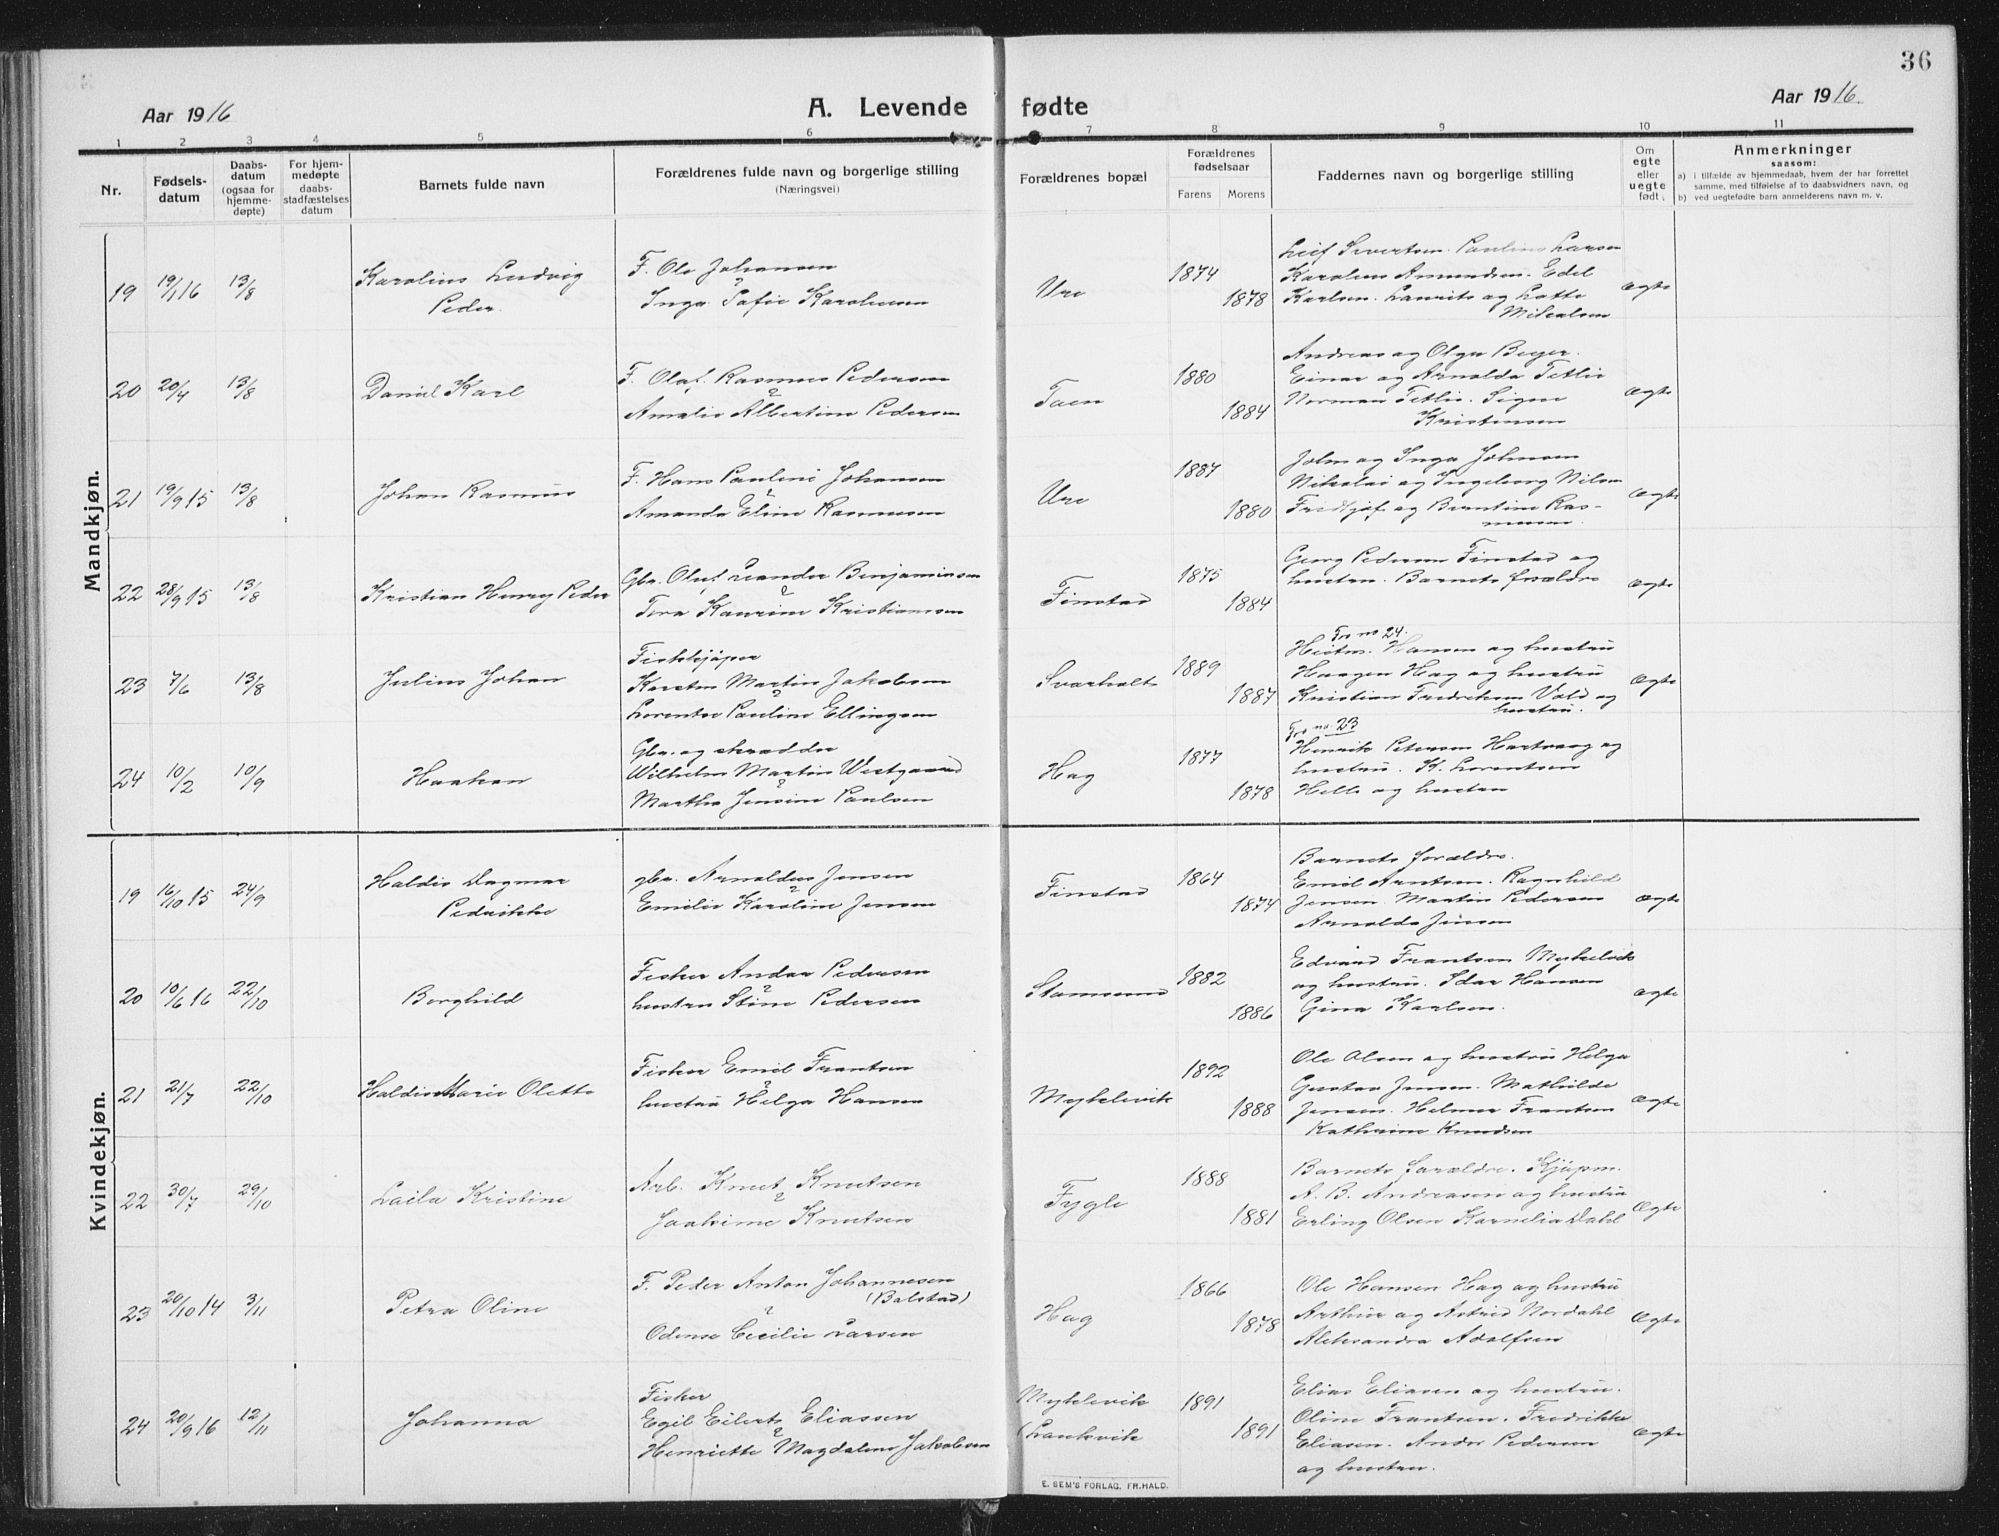 36
Aar 1916
A. Levende fødte
Aar 1916.
1 2 3 4 5 6 7 8 9 10 11
Nr.
Fødsels-
datum
Daabs-
datum
(ogsaa for
hjemme-
døpte)
For hjem-
medøpte
daabs-
stadfæstelses
datum
Barnets fulde navn
Forældrenes fulde navn og borgerlige stilling
(Næringsvei)
Forældrenes bopæl
Forældrenes
fødselsaar
Farens Morens
Faddernes navn og borgerlige stilling
Om
egte
eller
uegte
født.
Anmerkninger
saasom:
a) i tilfælde av hjemmedaab, hvem der har forrettet
samme, med tilføielse af to daabsvidners navn, og
b) ved uegtefødte barn anmelderens navn m. v.
Mandkjøn.
19 19/1 16 13/8
Karolius Ludvig
Peder.
F. Ole Johansen
Inga Sofie Karoliussen
Ure
1874
1878
Leif Sivertsen. Pauline Larsen
Karolius Amundsen. Edel
Karlsen. Laurits og Lotte
Mikalsen
Ægte
20 20/4 13/8
Daniel Karl
F. Olaf Rasmus Pedersen
Amalie Albertine Pedersen
Taen
1880
1884
Andreas og Olga Beyer.
Einar og Arnolda Tetlie
Norman Tetlie. Signe
Kristensen
Ægte
21 19/9 15 13/8
Johan Rasmus
F. Hans Paulini Johansen
Amanda Eline Rasmussen
Ure
1887
1880
John og Inga Johnsen
Nikolai og Ingeborg Nilsen
Fredtjof og Berntine Ras-
mussen.
Ægte
22 28/9 15 13/8
Kristian Henry Peder
Gbr. Oluf Leander Benjaminsen
Tora Kaurine Kristiansen
Finstad
1875
1884
Georg Pedersen Finstad og
hustru. Barnets forældre
Ægte
23 7/6 13/8
Julius Johan
Fiskekjøper
Karsten Martin Jakobsen
Lorentse Pauline Ellingsen
Svarholt
1889
1887
For no 24.
Heitm. Hansen og hustru
Haagen Hag og hustru
Kristian Fredriksen Vold og
hustru.
Ægte
24 10/2 10/9
Haakon
Gbr. og skrædder
Wilhelm Martin Westgaard
Martha Jensine Paulsen
Hag
1877
1878
For no. 23
Henrik Petersen Hartvaag og
hustru. K. Lorentsen
Helle og hustru
Kvindekjøn.
19 16/10 15 24/9
Haldis Dagmar
Pedrikke
gbr. Arnoldus Jensen
Emilie Karoline Jensen
Finstad
1864
1874
Barnets forældre.
Emil Arntsen. Ragnhild
Jensen. Martin Pedersen
Arnolda Jensen
Ægte
20 10/6 16 22/10
Borghild
Fisker Andor Pedersen
hustru Stine Pedersen
Stamsund
1882
1886
Edvard Frantsen Myklevik
og hustru. Idar Hansen
Gina Karlsen.
Ægte
21 21/7 22/10
Haldis Marie Olette
Fisker Emil Frantsen
hustru Helga Hansen
Myklevik
1892
1888
Ole Olsen og hustru Helga
Gustav Jensen. Mathilde
Jensen. Helmer Frantsen
Kathrine Knudsen
Ægte
22 30/7 29/10
Laila Kristine
Arb. Knut Knutsen
Joakime Knutsen
Fygle
1888
1881
Barnets forældre. Kjøpm.
A. B. Andreasen og hustru
Erling Olsen Karnelia Dahl
Ægte
23 20/10 14 3/11
Petra Oline
F. Peder Anton Johannesen
(Balstad)
Odense Cecilie Larsen
Hag
1866
1878
Ole Hansen Hag og hustru
Arthur og Astrid Nordahl
Aleksandra Adolfsen
Ægte
24 20/9 16 12/11
Johanna
Fisker
Egil Eilerts Eliassen
Henriette Magdalene Jakobsen
Myklevik
1891
1891
Elias Eliasen og hustru.
Oline Frantsen. Fredrikke
Eliasen. Andor Pedersen
og hustru.
Ægte
E. SEM'S FORLAG, FR.HALD.